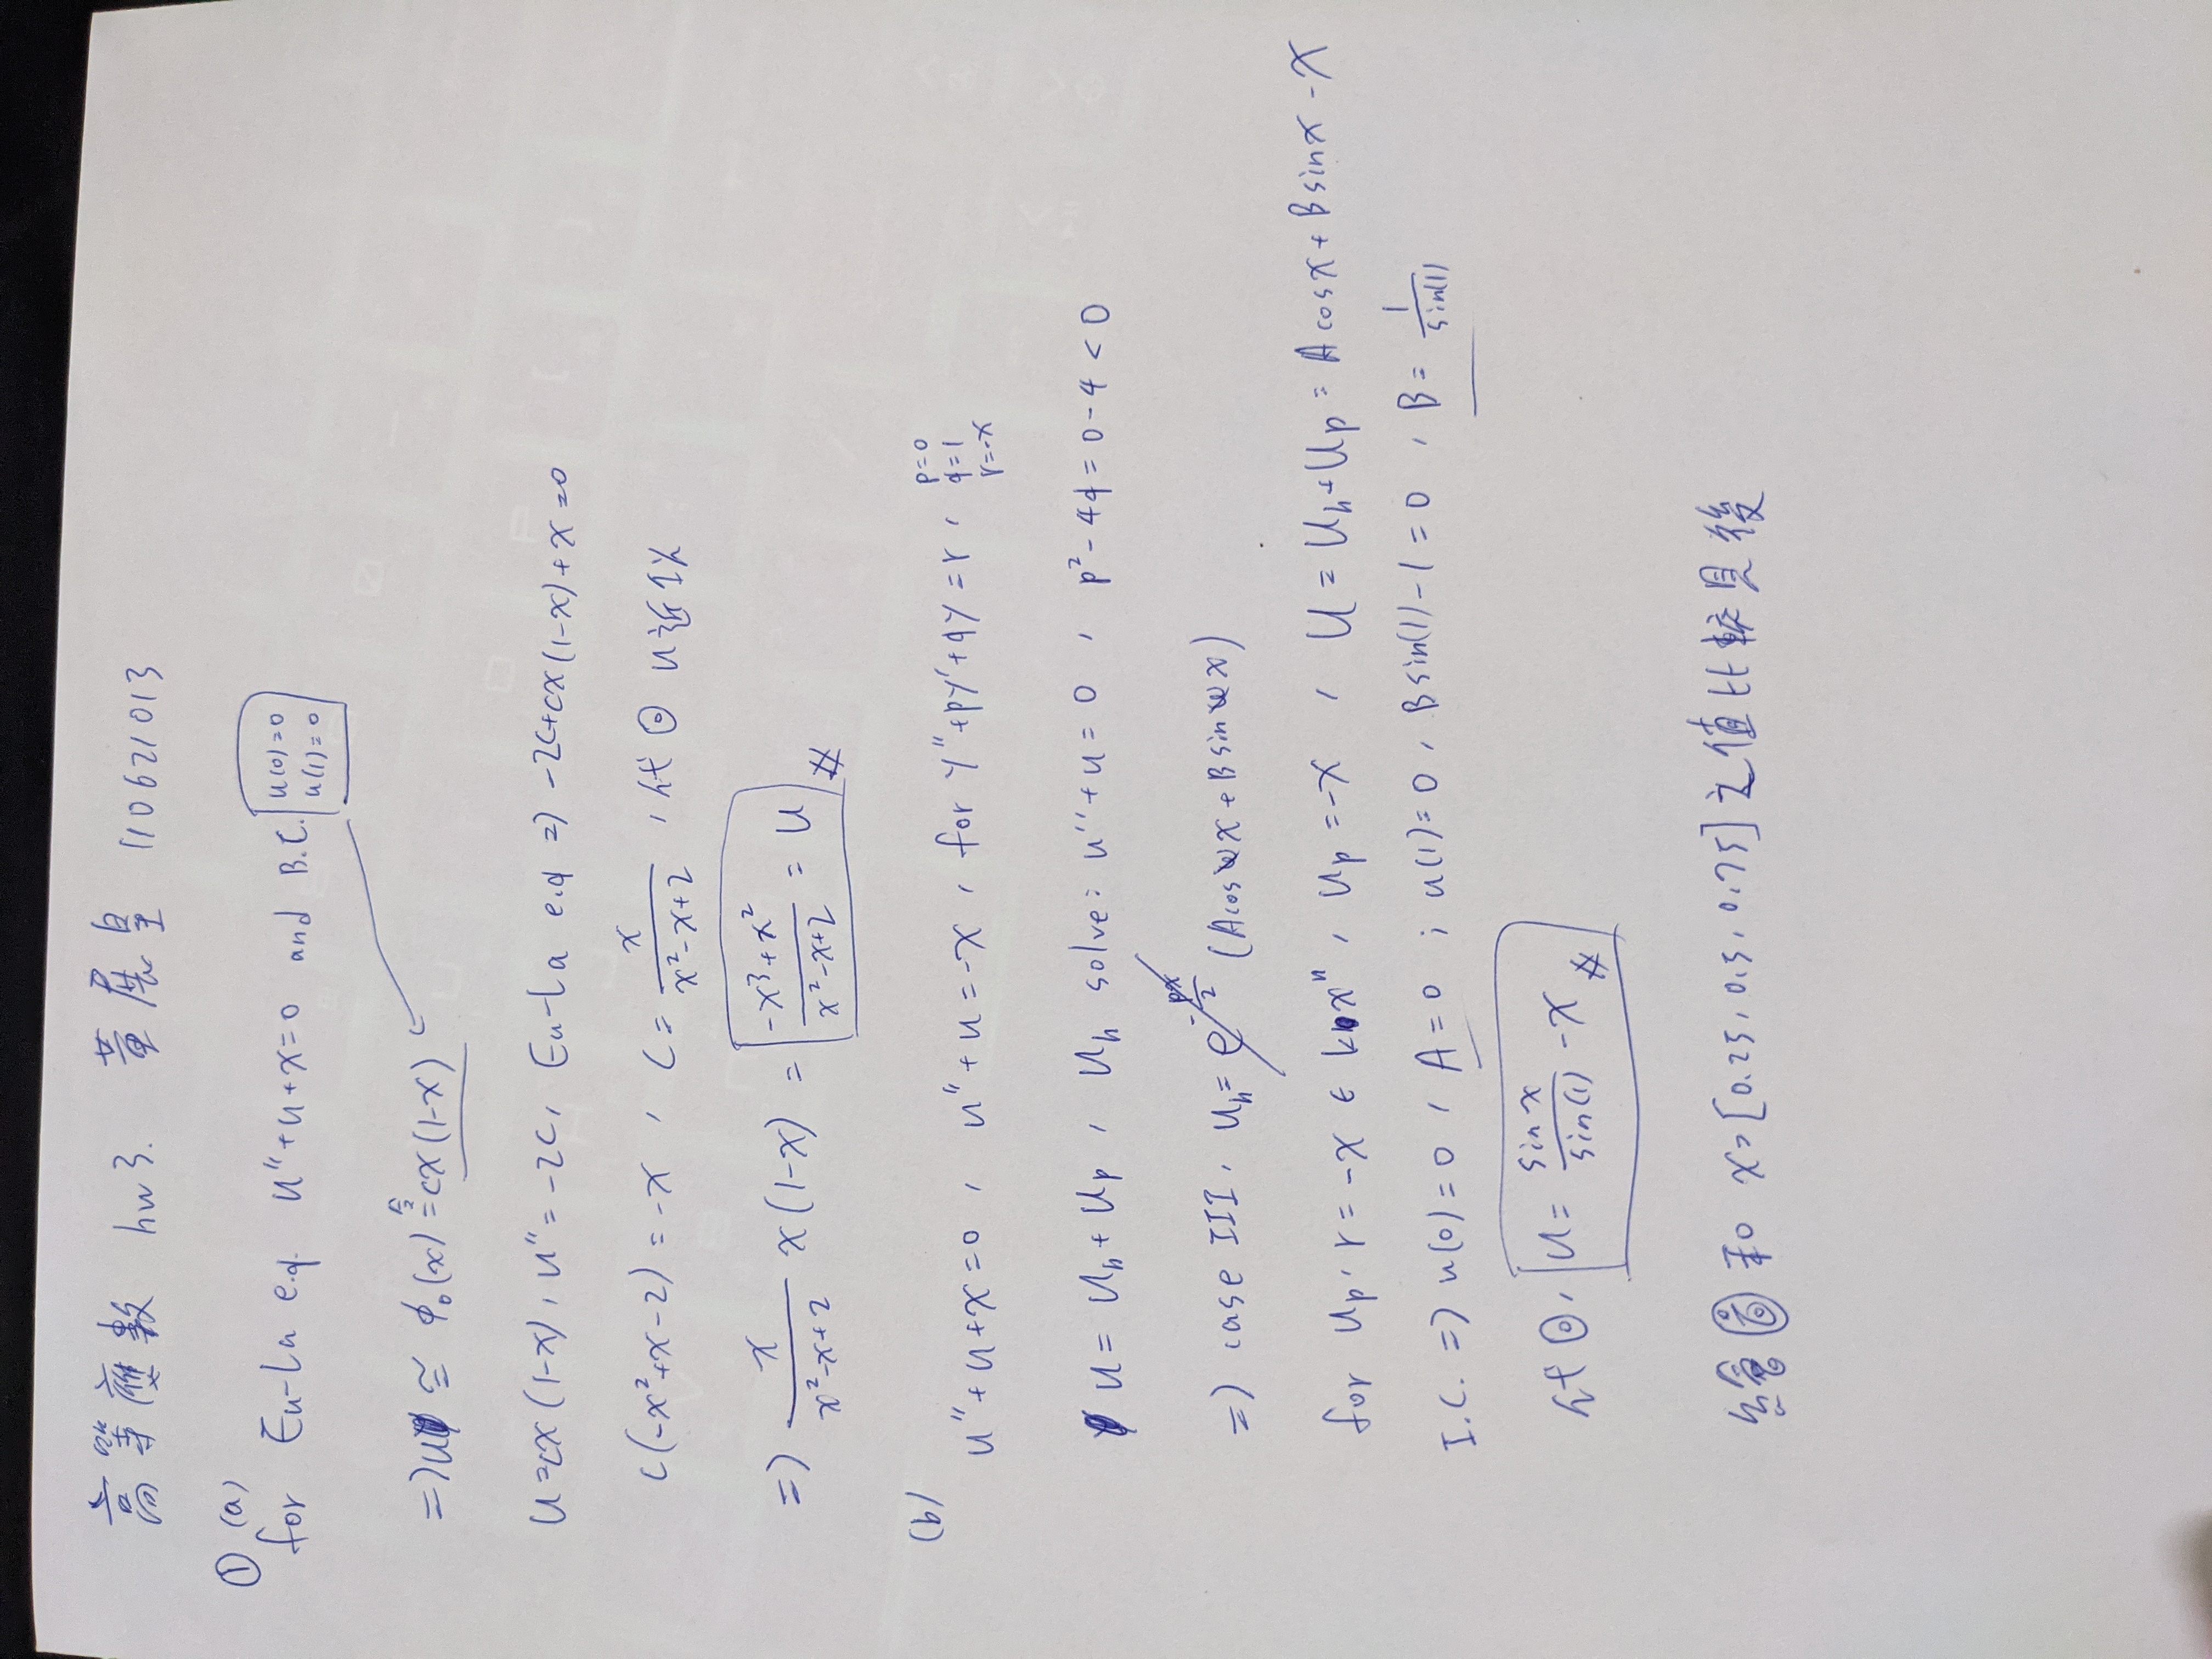 高等應數 hw3. 黃展皇 110621013
① (a)
for Eu-La e.q. u''+u+x=0 and B.C. u(0)=0
u(1)=0
=> u ≅ ϕ₀(x) = cx(1-x)
u=cx(1-x), u''=-2c, Eu-La e.q => -2c+cx(1-x)+x=0
c(-x²+x-2)=-x, c= x/(x²-x+2), 代回 u近似
=> x/(x²-x+2) x(1-x) = (-x³+x²)/(x²-x+2) = u #
(b)
u''+u+x=0, u''+u=-x, for y''+py'+qy=r, p=0
q=1
r=-x
u= u_h+u_p, u_h solve: u''+u=0, p²-4q=0-4<0
=> case III, u_h= e^(-px/2) (Acos x+B sin x)
for u_p, r=-x ∈ kxⁿ, u_p=-x, u=u_h+u_p=A cosx+B sinx-x
I.C. => u(0)=0, A=0; u(1)=0, B sin(1)-1=0, B= 1/sin(1)
代回, u= sin x/sin(1) -x #
繪圖和 x=[0.25, 0.5, 0.75]之值比較見後